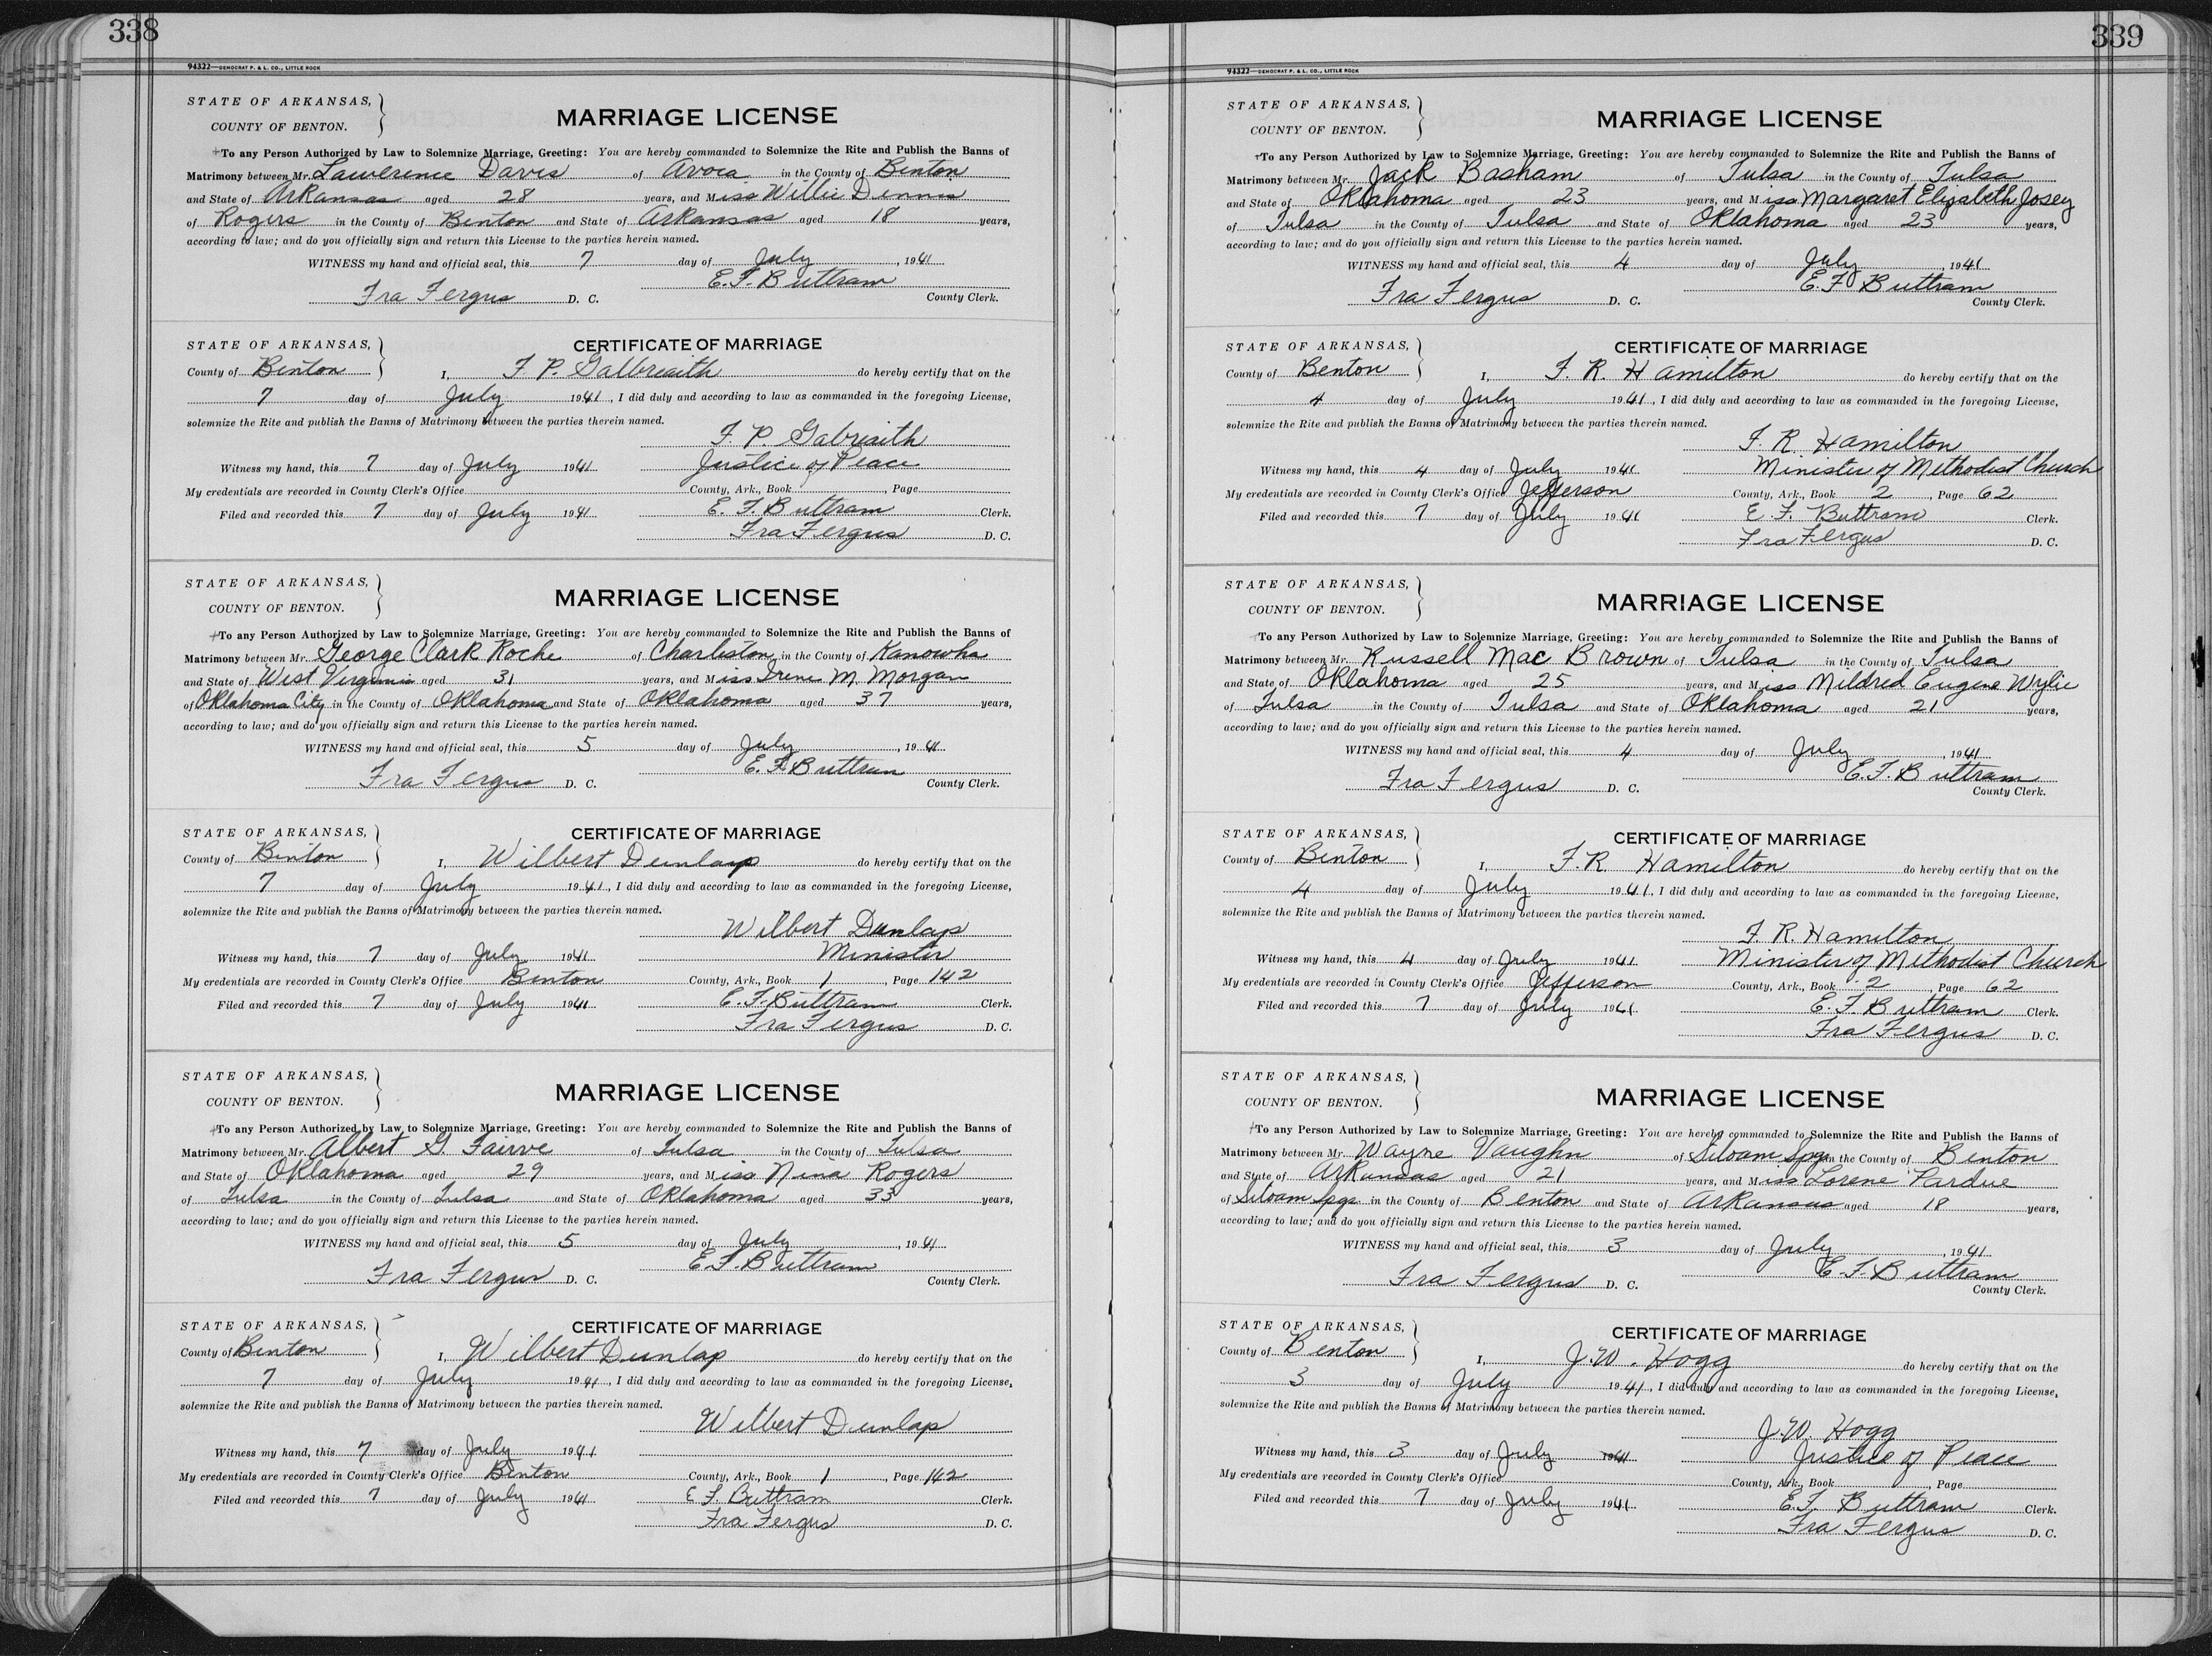 338
94322—DEMOCRAT P. & L. CO., LITTLE ROCK
STATE OF ARKANSAS,
COUNTY OF BENTON.
MARRIAGE LICENSE
To any Person Authorized by Law to Solemnize Marriage, Greeting: You are hereby commanded to Solemnize the Rite and Publish the Banns of
Matrimony between Mr. Lawerence Davis of Avoca in the County of Benton
and State of Arkansas aged 28 years, and Miss Willie Dennis
of Rogers in the County of Benton and State of Arkansas aged 18 years,
according to law; and do you officially sign and return this License to the parties herein named.
WITNESS my hand and official seal, this 7 day of July, 1941
E. F. Buttram
Fra Fergus D. C. County Clerk.
STATE OF ARKANSAS,
CERTIFICATE OF MARRIAGE
County of Benton I, F. P. Galbreaith do hereby certify that on the
7 day of July 1941, I did duly and according to law as commanded in the foregoing License,
solemnize the Rite and publish the Banns of Matrimony between the parties therein named.
F. P. Gabreaith
Witness my hand, this 7 day of July 1941 Justice of Peace
My credentials are recorded in County Clerk's Office County, Ark., Book , Page
Filed and recorded this 7 day of July 1941 E. F. Buttram Clerk.
Fra Fergus D. C.
STATE OF ARKANSAS,
COUNTY OF BENTON.
MARRIAGE LICENSE
To any Person Authorized by Law to Solemnize Marriage, Greeting: You are hereby commanded to Solemnize the Rite and Publish the Banns of
Matrimony between Mr. George Clark Roche of Charleston in the County of Kanowha
and State of West Virginia aged 31 years, and Miss Irene M. Morgan
of Oklahoma City in the County of Oklahoma and State of Oklahoma aged 37 years,
according to law; and do you officially sign and return this License to the parties herein named.
WITNESS my hand and official seal, this 5 day of July, 1941
E. F. Buttram
Fra Fergus D. C. County Clerk.
STATE OF ARKANSAS,
CERTIFICATE OF MARRIAGE
County of Benton I, Wilbert Dunlap do hereby certify that on the
7 day of July 1941, I did duly and according to law as commanded in the foregoing License,
solemnize the Rite and publish the Banns of Matrimony between the parties therein named.
Wilbert Dunlap
Witness my hand, this 7 day of July 1941 Minister
My credentials are recorded in County Clerk's Office Benton County, Ark., Book 1, Page 142
Filed and recorded this 7 day of July 1941 E. F. Buttram Clerk.
Fra Fergus D. C.
STATE OF ARKANSAS,
COUNTY OF BENTON.
MARRIAGE LICENSE
To any Person Authorized by Law to Solemnize Marriage, Greeting: You are hereby commanded to Solemnize the Rite and Publish the Banns of
Matrimony between Mr. Albert G. Fairve of Tulsa in the County of Tulsa
and State of Oklahoma aged 29 years, and Miss Nina Rogers
of Tulsa in the County of Tulsa and State of Oklahoma aged 33 years,
according to law; and do you officially sign and return this License to the parties herein named.
WITNESS my hand and official seal, this 5 day of July, 1941
E. F. Buttram
Fra Fergus D. C. County Clerk.
STATE OF ARKANSAS,
CERTIFICATE OF MARRIAGE
County of Benton I, Wilbert Dunlap do hereby certify that on the
7 day of July 1941, I did duly and according to law as commanded in the foregoing License,
solemnize the Rite and publish the Banns of Matrimony between the parties therein named.
Wilbert Dunlap
Witness my hand, this 7 day of July 1941
My credentials are recorded in County Clerk's Office Benton County, Ark., Book 1, Page 142
Filed and recorded this 7 day of July 1941 E F. Buttram Clerk.
Fra Fergus D. C.
339
94322—DEMOCRAT P. & L. CO., LITTLE ROCK
STATE OF ARKANSAS,
COUNTY OF BENTON.
MARRIAGE LICENSE
To any Person Authorized by Law to Solemnize Marriage, Greeting: You are hereby commanded to Solemnize the Rite and Publish the Banns of
Matrimony between Mr. Jack Basham of Tulsa in the County of Tulsa
and State of Oklahoma aged 23 years, and Miss Margaret Elizabeth Josey
of Tulsa in the County of Tulsa and State of Oklahoma aged 23 years,
according to law; and do you officially sign and return this License to the parties herein named.
WITNESS my hand and official seal, this 4 day of July, 1941
E. F Buttram
Fra Fergus D. C. County Clerk.
STATE OF ARKANSAS,
CERTIFICATE OF MARRIAGE
County of Benton I, F. R. Hamilton do hereby certify that on the
4 day of July 1941, I did duly and according to law as commanded in the foregoing License,
solemnize the Rite and publish the Banns of Matrimony between the parties therein named.
F. R. Hamilton
Witness my hand, this 4 day of July 1941 Minister of Methodist Church
My credentials are recorded in County Clerk's Office Jefferson County, Ark., Book 2, Page 62
Filed and recorded this 7 day of July 1941 E. F. Buttram Clerk.
Fra Fergus D. C.
STATE OF ARKANSAS,
COUNTY OF BENTON.
MARRIAGE LICENSE
To any Person Authorized by Law to Solemnize Marriage, Greeting: You are hereby commanded to Solemnize the Rite and Publish the Banns of
Matrimony between Mr. Russell Mac Brown of Tulsa in the County of Tulsa
and State of Oklahoma aged 25 years, and Miss Mildred Eugene Wylie
of Tulsa in the County of Tulsa and State of Oklahoma aged 21 years,
according to law; and do you officially sign and return this License to the parties herein named.
WITNESS my hand and official seal, this 4 day of July, 1941
E. F. Buttram
Fra Fergus D. C. County Clerk.
STATE OF ARKANSAS,
CERTIFICATE OF MARRIAGE
County of Benton I, F. R Hamilton do hereby certify that on the
4 day of July 1941, I did duly and according to law as commanded in the foregoing License,
solemnize the Rite and publish the Banns of Matrimony between the parties therein named.
F. R. Hamilton
Witness my hand, this 4 day of July 1941 Minister of Methodist Church
My credentials are recorded in County Clerk's Office Jefferson County, Ark., Book 2, Page 62
Filed and recorded this 7 day of July 1941 E. F. Buttram Clerk.
Fra Fergus D. C.
STATE OF ARKANSAS,
COUNTY OF BENTON.
MARRIAGE LICENSE
To any Person Authorized by Law to Solemnize Marriage, Greeting: You are hereby commanded to Solemnize the Rite and Publish the Banns of
Matrimony between Mr. Wayne Vaughn of Siloam Spgs in the County of Benton
and State of Arkansas aged 21 years, and Miss Lorene Pardue
of Siloam spgs in the County of Benton and State of Arkansas aged 18 years,
according to law; and do you officially sign and return this License to the parties herein named.
WITNESS my hand and official seal, this 3 day of July, 1941
E. F. Buttram
Fra Fergus D. C. County Clerk.
STATE OF ARKANSAS,
CERTIFICATE OF MARRIAGE
County of Benton I, J. W. Hogg do hereby certify that on the
3 day of July 1941, I did duly and according to law as commanded in the foregoing License,
solemnize the Rite and publish the Banns of Matrimony between the parties therein named.
J. W. Hogg
Witness my hand, this 3 day of July 1941 Justice of Peace
My credentials are recorded in County Clerk's Office County, Ark., Book , Page
Filed and recorded this 7 day of July 1941 E. F. Buttram Clerk.
Fra Fergus D. C.